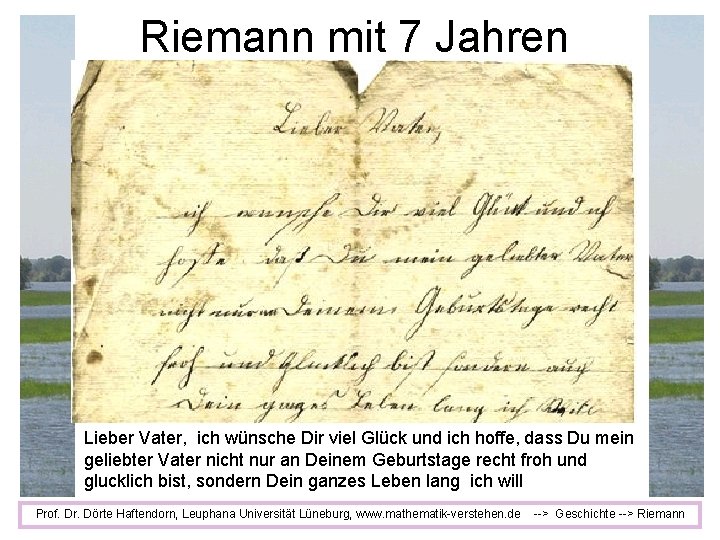 Riemann mit 7 Jahren
Lieber Vater,
ich wunsche Dir viel Glük und ich
hoffe. daß Du mein geliebter Vater
nicht nur an Deinem Geburtstage recht
froh und Glücklich bist sondern auch
Dein ganzes Leben lang ich
Lieber Vater, ich wünsche Dir viel Glück und ich hoffe, dass Du mein
geliebter Vater nicht nur an Deinem Geburtstage recht froh und
glucklich bist, sondern Dein ganzes Leben lang ich will
Prof. Dr. Dörte Haftendorn, Leuphana Universität Lüneburg, www.mathematik-verstehen.de --> Geschichte --> Riemann